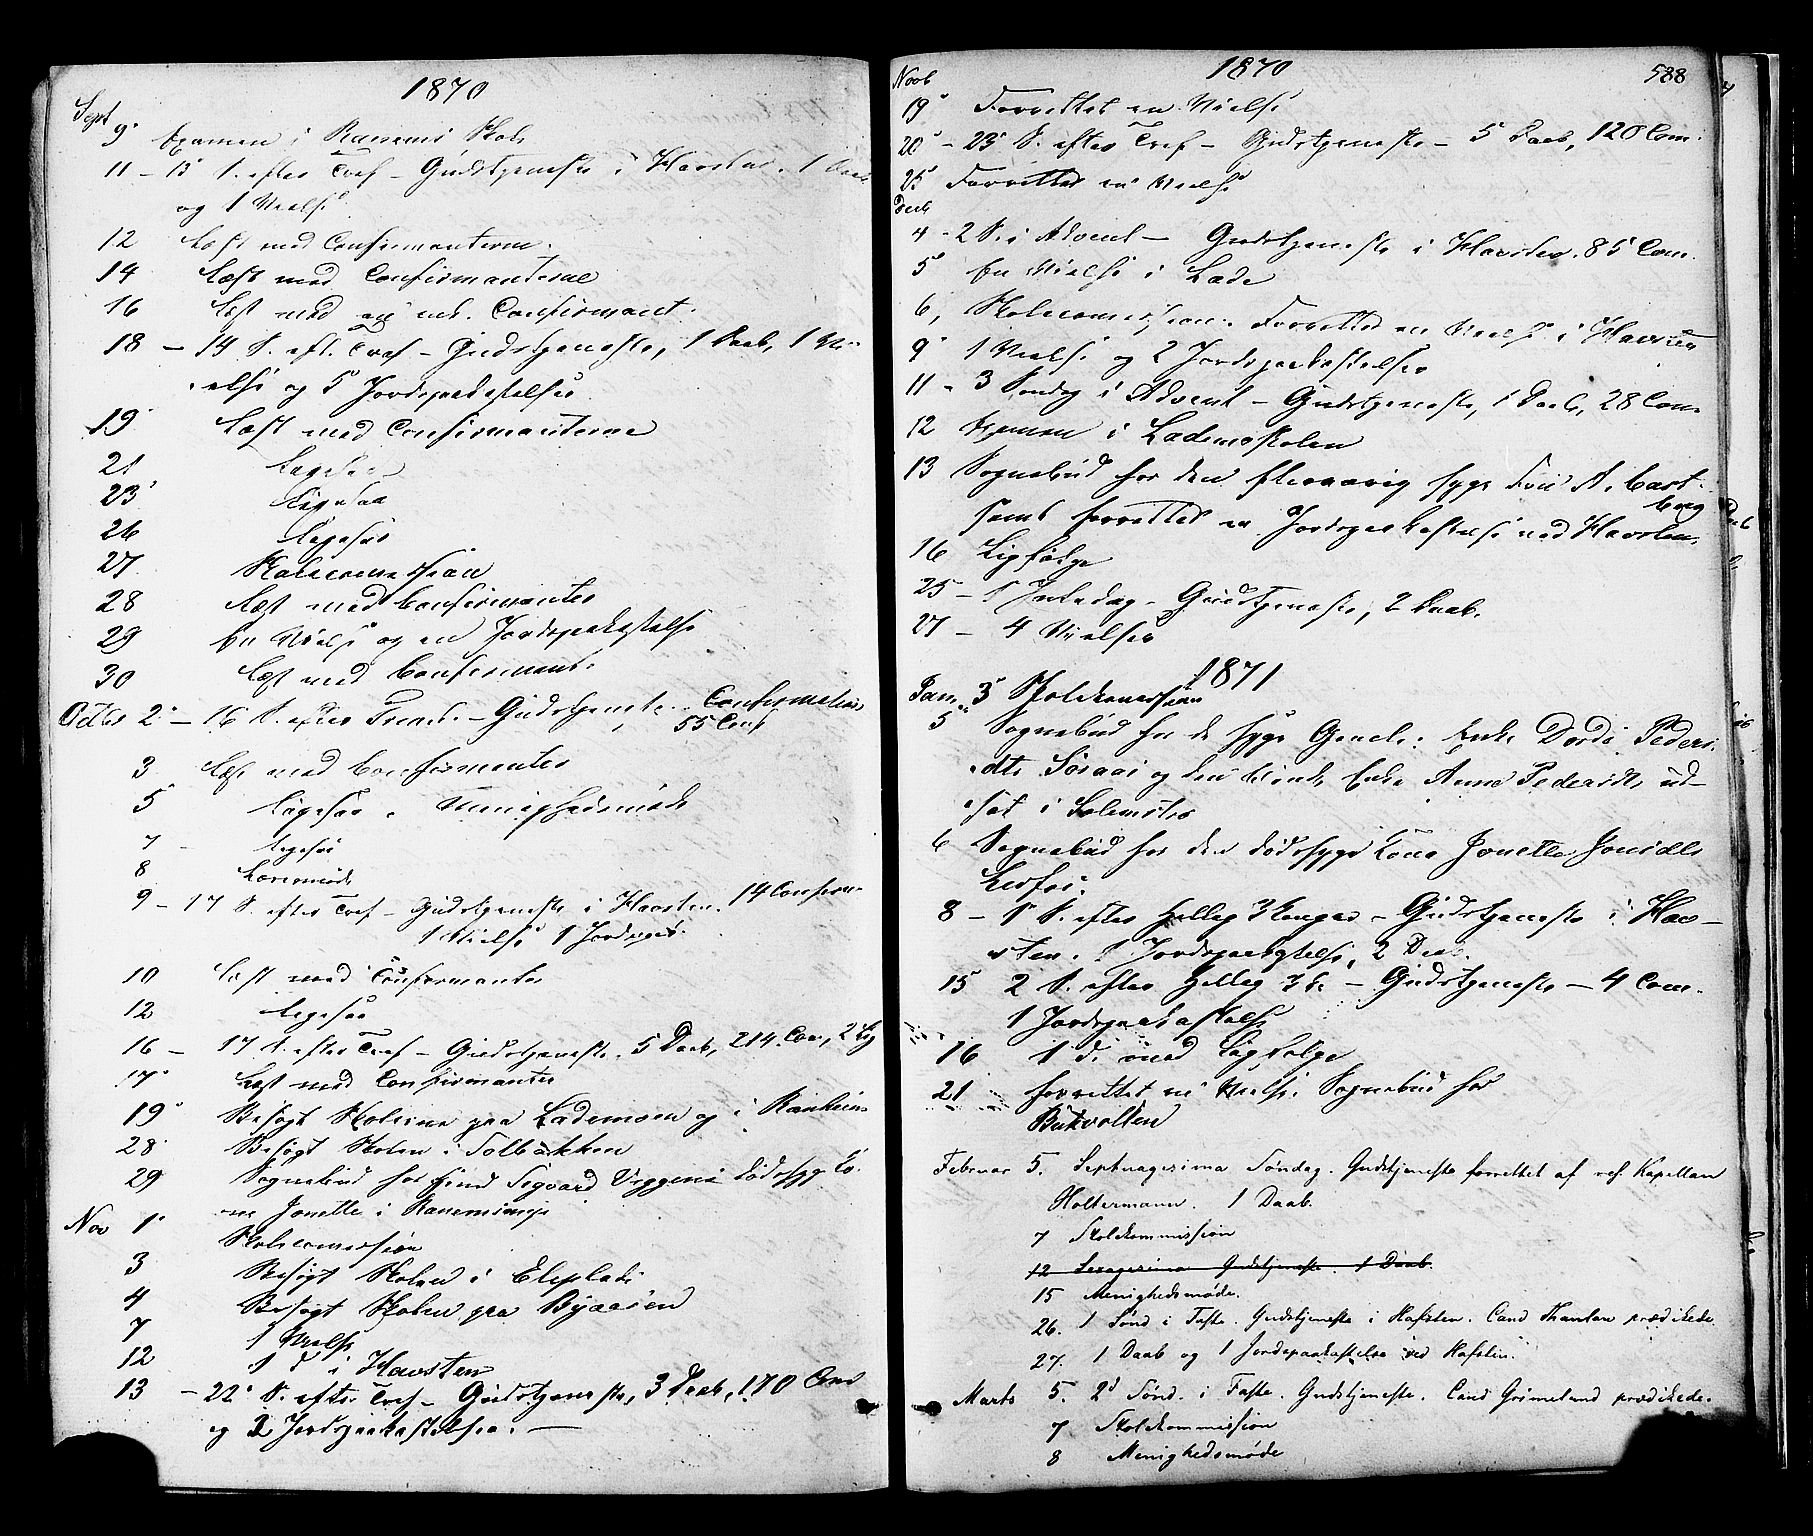 1870
Sept
9 Examen i Ranems Skole
11 - 13 S. efter Tref - Gudstjeneste i Havsten. 1 Daab
og 1 Vielse
12 Læst med Confirmanterne.
14 Læst med Confirmanterne
16 Læst med Confirmant.
18 - 14 S. eft. Tref - Gudstjeneste, 1 Daab, 1 Vi-
else og 5 Jordspaakastelser.
19 Læst med Confirmanterne
21 Ligesaa
23 Ligesaa
26 Ligesaa
27 Skolecomission
28 Læst med Confirmanter
29 En Vielse og en Jordspaakastelse
30 Læst med Confirmant.
Octbr 2 - 16 S. efter - Gudstjeneste. Confirmation
55 Conf
3 Læst med Confirmanter
5 Ligesaa. Menighedsmøde
7 Ligesaa
8 Lærermøde
9 - 17 S. efter Tref - Gudstjeneste i Havsten. 14
1 Vielse 1 Jordspaa.
10 Læst med Confirmanter
12 Ligesaa
16 - 17 S. efter Tref - Gudstjeneste. 5 Daab, 214 Com, 2
17 Læst med Confirmanter
19 Besøgt Skolerne paa Lademoen og i Ranheim
28 Besøgt Skolen i Solbakken
29 Sognebud hos Sigvard dødssyg Ko-
ne Jonette i
Nov 1 Skolecomission
3 Besøgt Skolen i
4 Besøgt Skolen paa Byaasen
7 1 Vielse
12 1 d i Havsten
13 - 22 S. efter Tref - Gudstjeneste, 3 Daab, 170 Com
og 2 Jordspaakastelser. -
1870
588
Novb
19 Forrettet en Vielse
20 - 23 S. efter Tref - Gudstjeneste - 5 Daab, 120 Com.
25 Forrettet en Vielse
Decb
4 - 2 S. i Advent - Gudstjeneste i Havsten. 85 Com.
5 En Vielse i Lade
6, Skolecomission. Forrettet en Vielse i Havsten
9 1 Vielse og 2 Jordspaakastelser
11 - 3 Søndag i Advent - Gudstjeneste, 1 Daab, 28 Com
12 Examen i Lademoskolen
13 Sognebud hos den fleraarig syge Fru A. Cast-
berg
samt forrettet en Jordspaakastelse ved Havsten.
16 Ligfølge
25 - 1 Juledag - Gudstjeneste, 2 Daab.
27 - 4 Vielser
1871
Jan. 3 Skolekomission
5 Sognebud hos de syge Enke Dordi Peders-
dtr og den Enke Anne Pedersdtr ud-
sat i
6 Sognebud hos den dødssyge Kone Jonetta Jonsdtr
8 - 1 S. efter Hellig 3 Konger - Gudstjeneste i Hav-
sten. 1 Jordspaakastelse, 2 Daab.
15 2 S. efter Hellig 3 K. - Gudstjeneste - 4 Com.
1 Jordspaakastelse
16 1 d. med Ligfølge
21 forrettet en Vielse. Sognebud hos
Februar 5. Septuagesima Søndag. Gudstjeneste forrettet af res. Kapellan
Holtermann. 1 Daab.
7 Skolekommission
12 Sexagesima Gudstjeneste. 1 Daab.
15 Menighedsmøde.
26. 1 Sønd i Faste. Gudstjeneste i Hafsten. Cand prædikede.
27. 1 Daab og 1 Jordspaakastelse ved Hafsten.
Marts 5. 2d Sønd. i Faste. Gudstjeneste. Cand Grimelund prædikede.
7 Skolekommission
8 Menighedsmøde